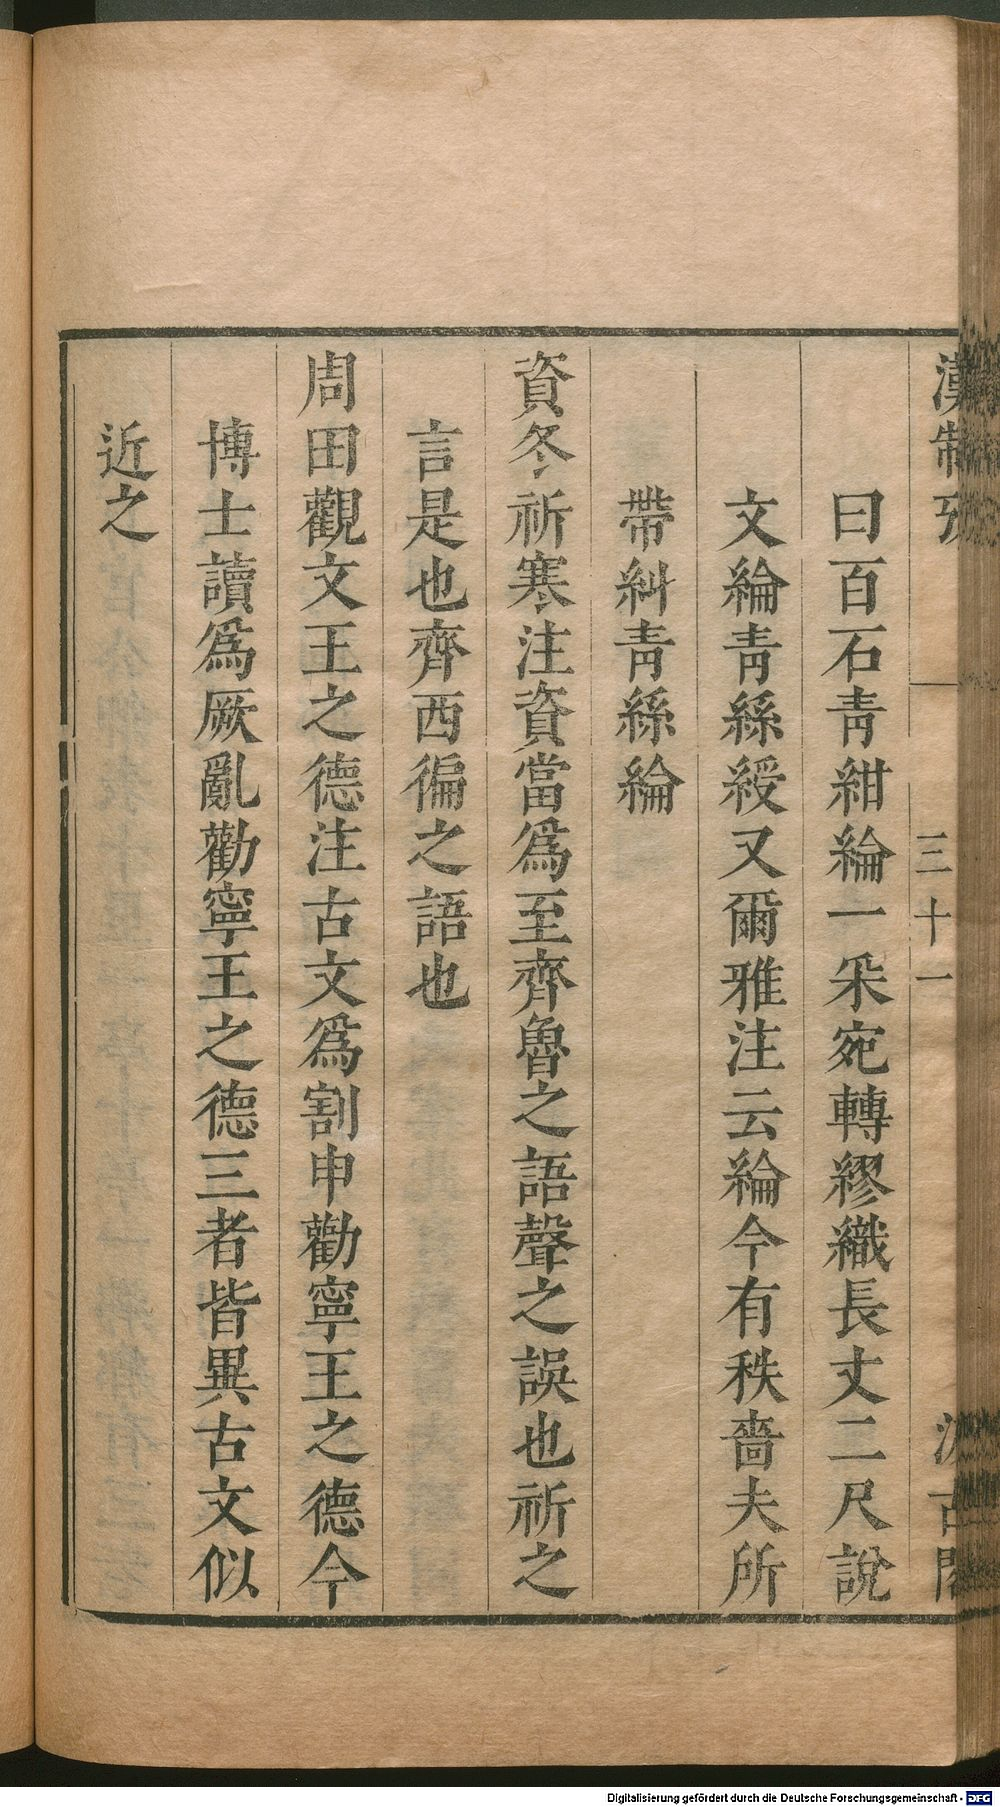 漢制攷
三十一
汲古閣
曰百石靑紺綸一采宛轉繆織長丈二尺說
文綸靑絲綬又爾雅注云綸今有秩嗇夫所
帶糾靑絲綸
資冬祈寒注資當爲至齊魯之語聲之誤也祈之
言是也齊西徧之語也
周田觀文王之德注古文爲割申勸寧王之德今
博士讀爲厥亂勸寧王之德三者皆異古文似
近之
Digitalisierung gefördert durch die Deutsche Forschungsgemeinschaft - DFG